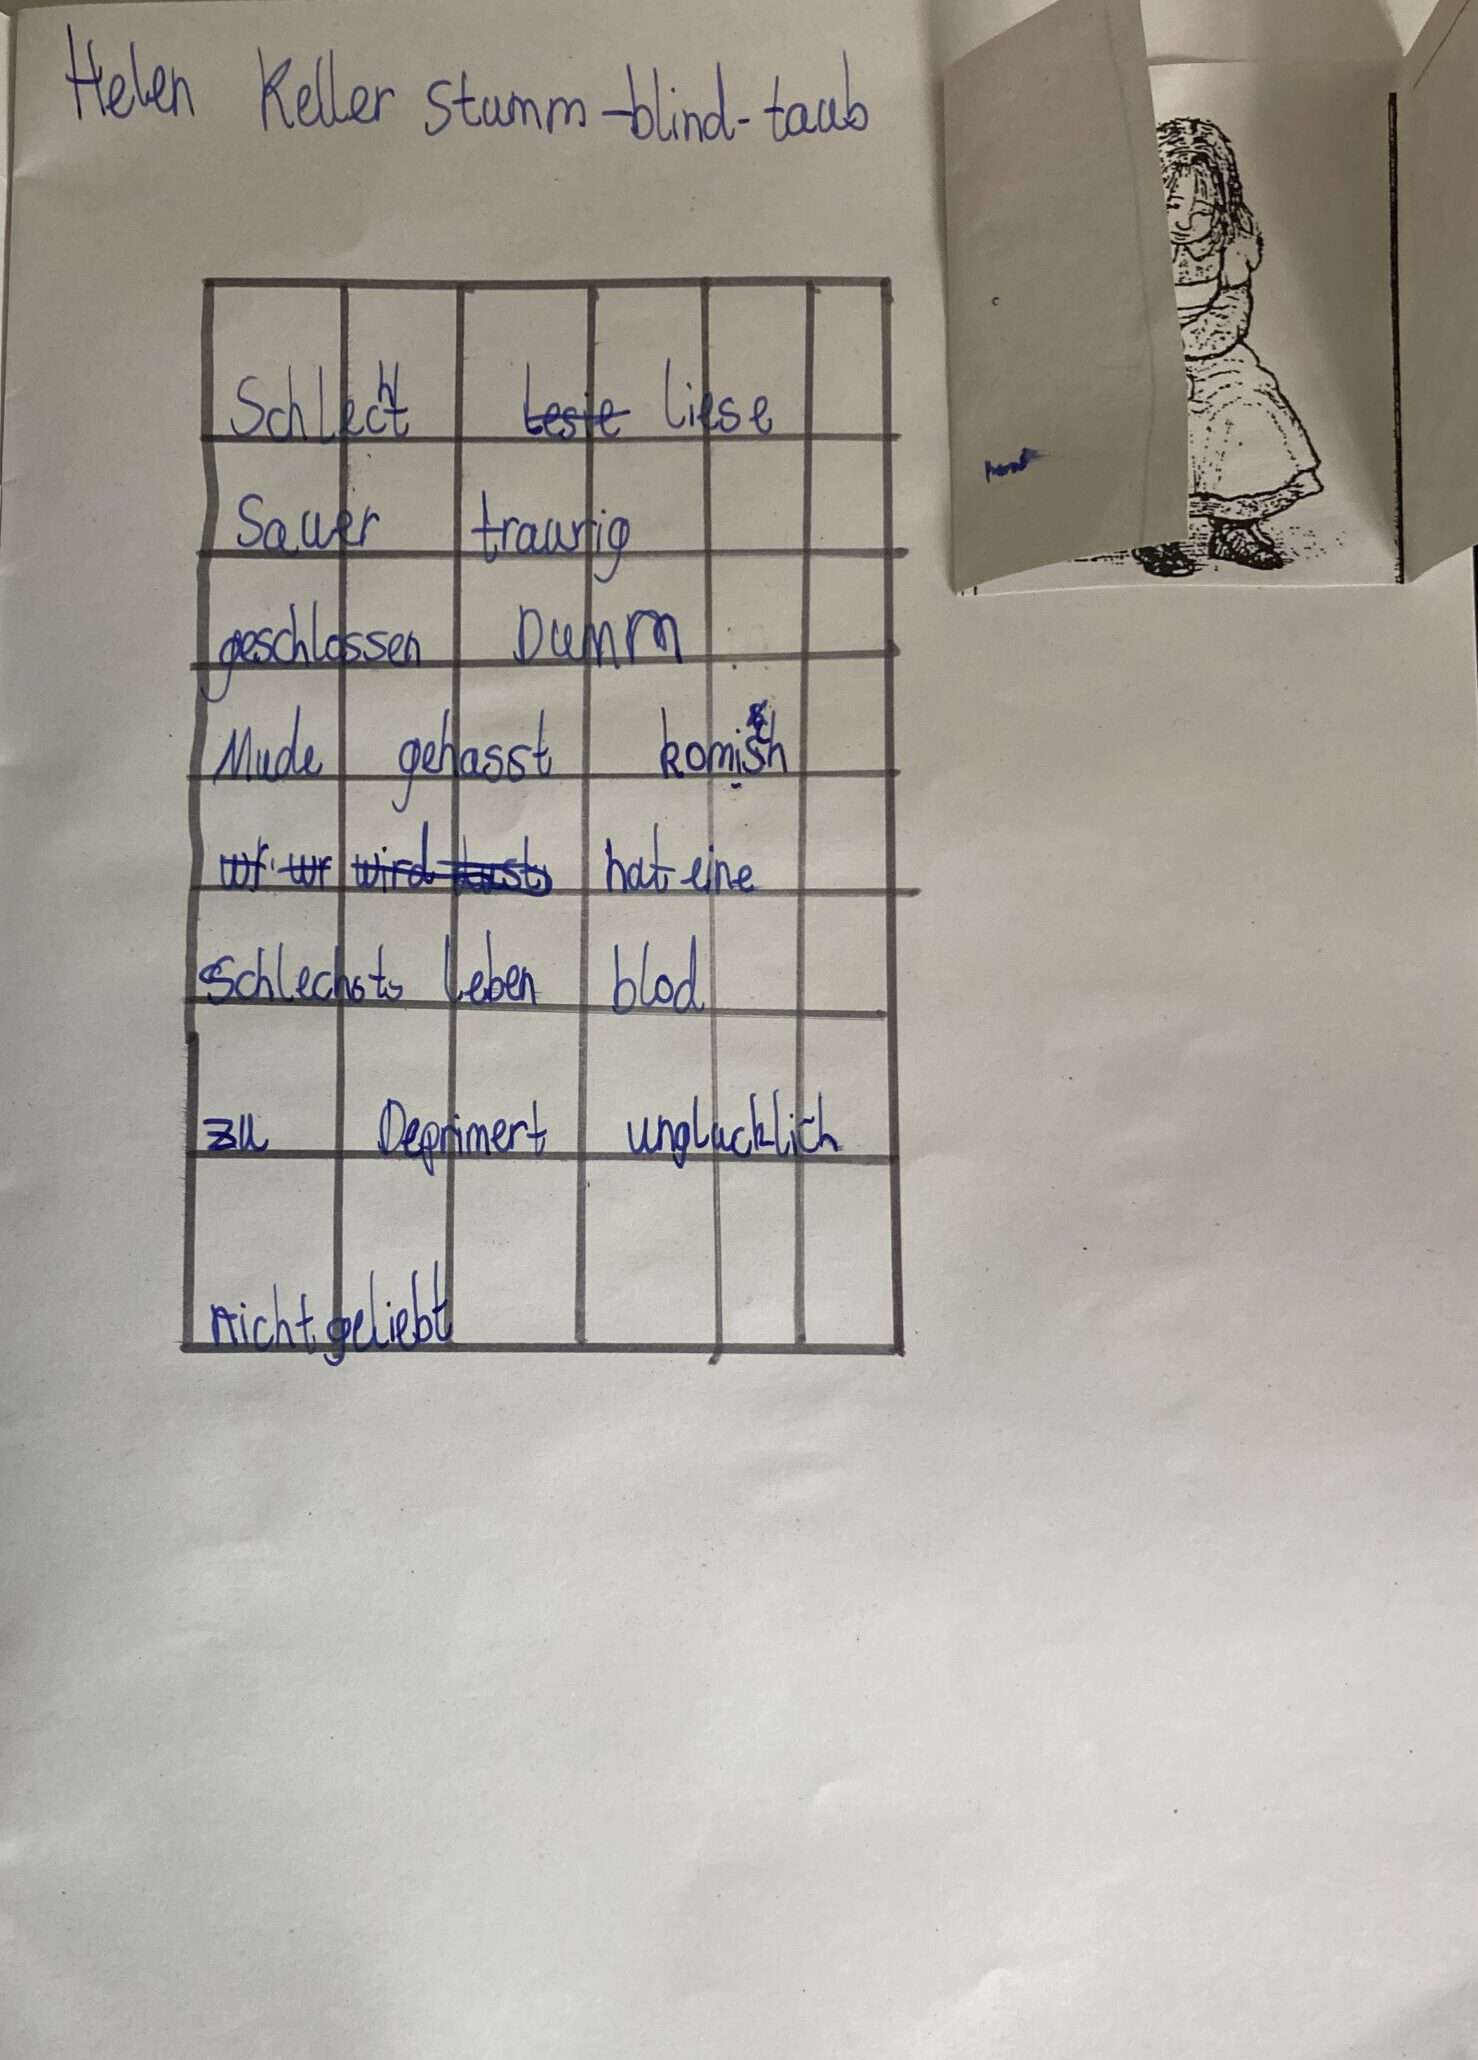 Helen Keller Stumm-blind-taub
Schlecht liese
Sauer traurig
geschlossen Dumm
Mude gehasst komisch
wird hat eine
Schlechsts leben blod
zu Deprimert unglucklich
nicht geliebt